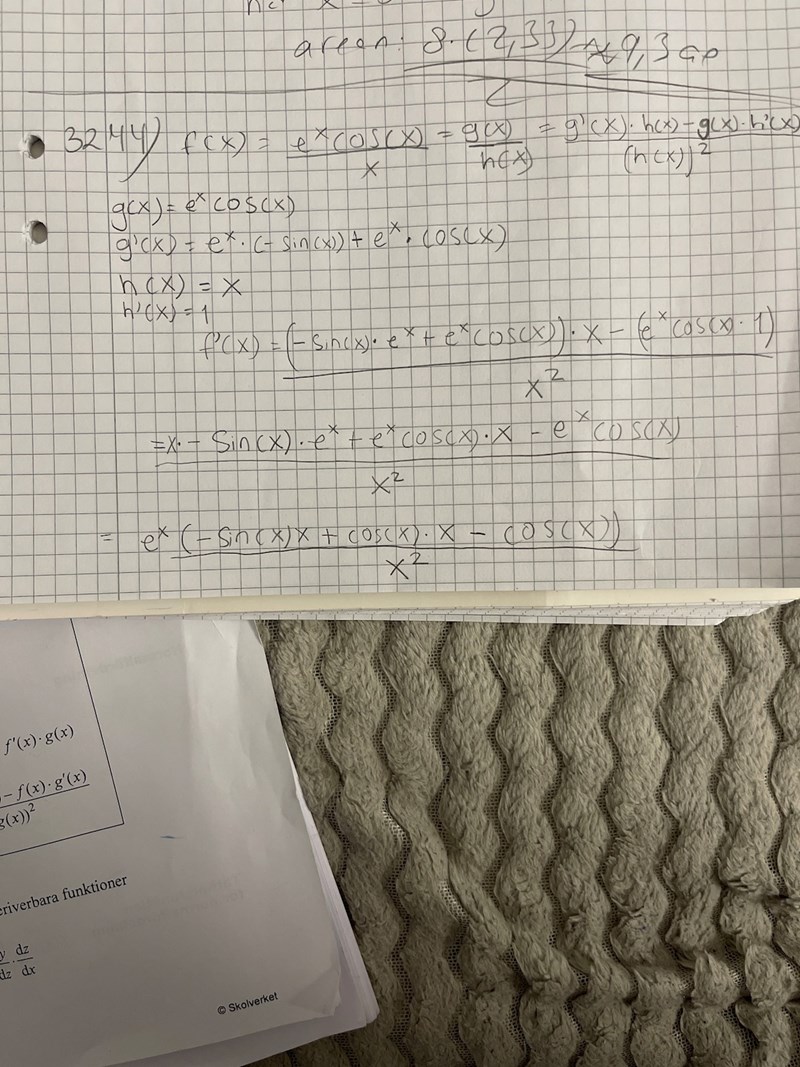 arean: 8·(2,33) ≈ 9,3 ae
3244) f(x) = e^x cos(x) / x = g(x) / h(x) = g'(x)·h(x) - g(x)·h'(x) / (h(x))^2
g(x) = e^x cos(x)
g'(x) = e^x·(-sin(x)) + e^x·cos(x)
h(x) = x
h'(x) = 1
f'(x) = (-sin(x)·e^x + e^x cos(x))·x - (e^x cos(x)·1) / x^2
= x·-sin(x)·e^x + e^x cos(x)·x - e^x cos(x) / x^2
= e^x (-sin(x)x + cos(x)·x - cos(x)) / x^2
f'(x)·g(x)
- f(x)·g'(x)
g(x))^2
eriverbara funktioner
y / dz · dz / dx
© Skolverket